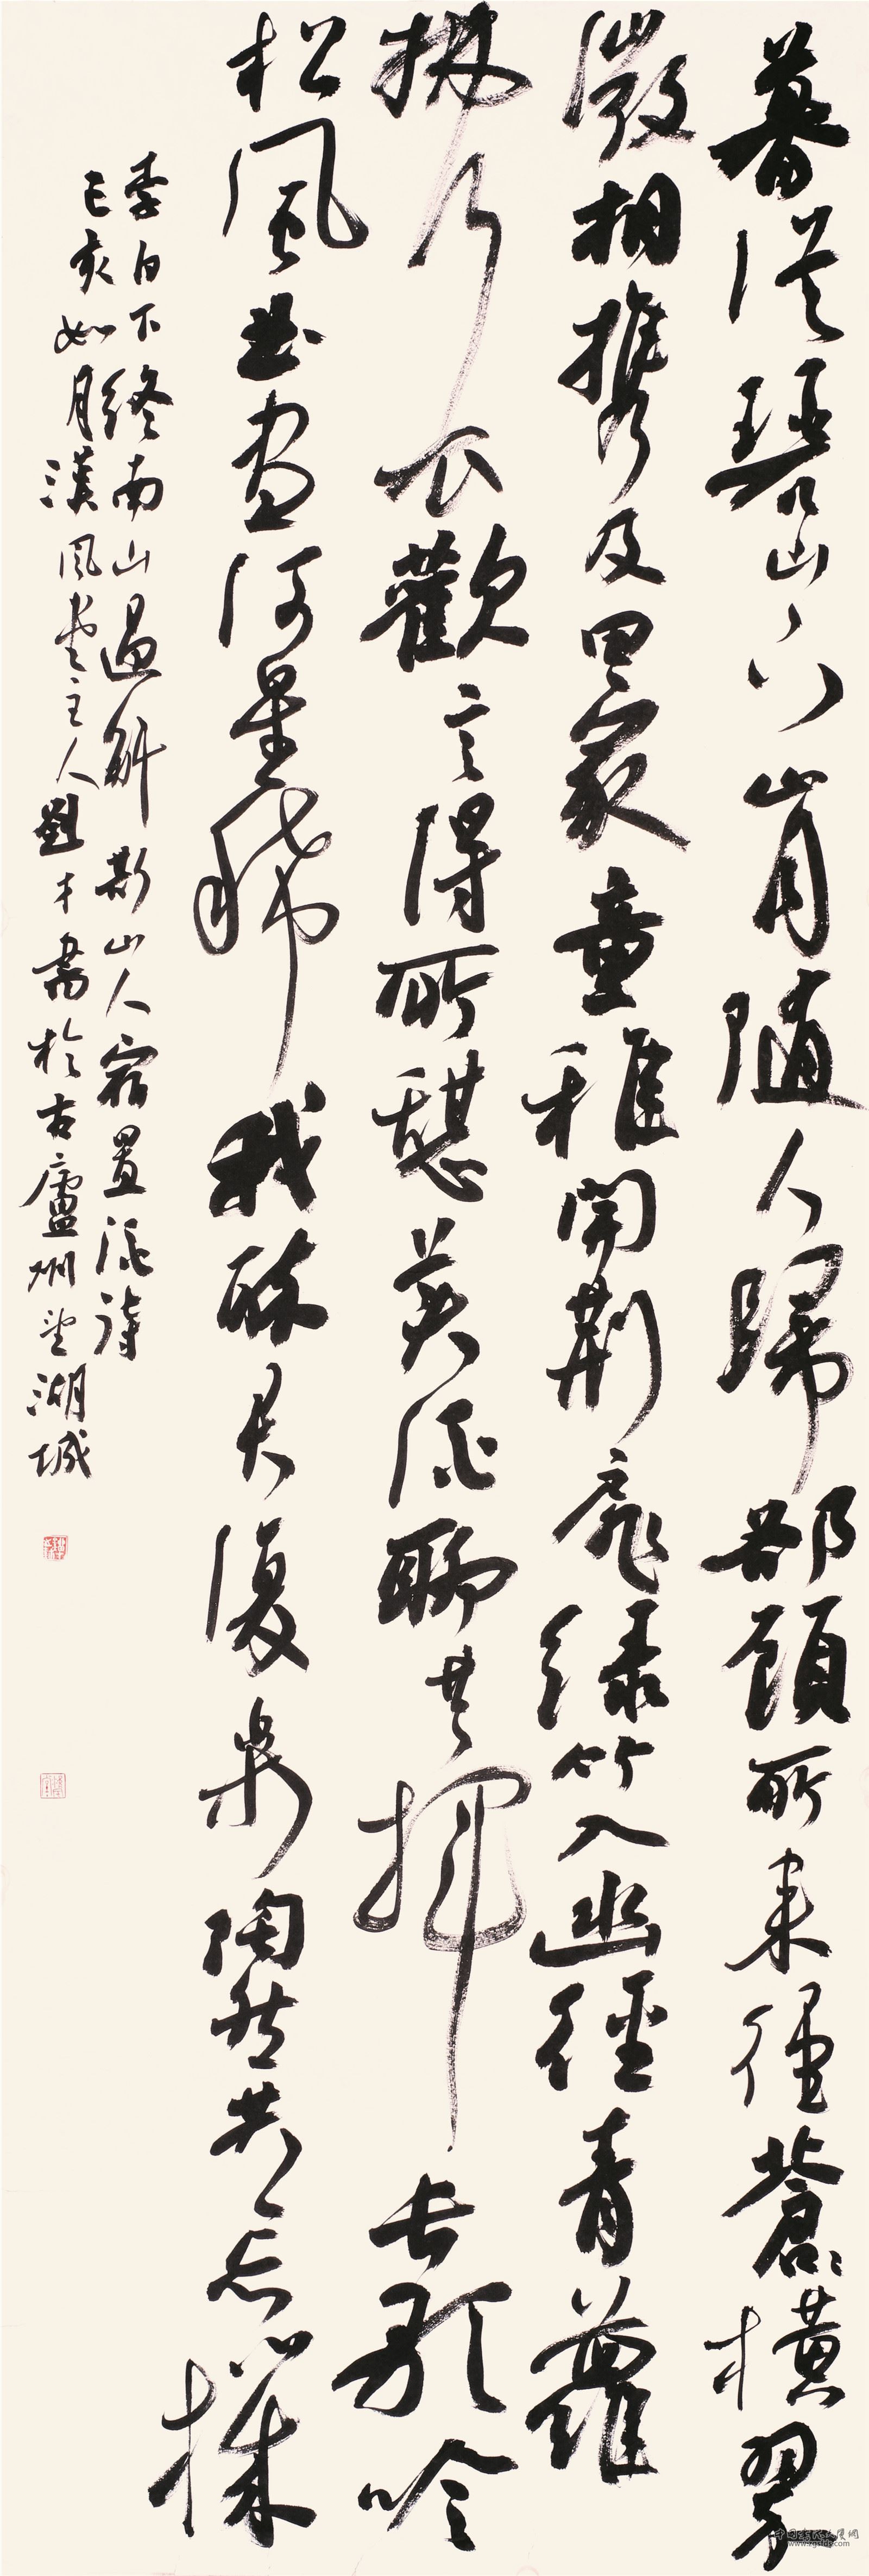 暮從碧山下山月隨人歸郤顧所来徑蒼々橫翠
微相攜及田家童稚開荆扉緑竹入幽徑青蘿
拂行衣歡言得所憩美酒聊共揮長歌吟
松風曲盡河星稀我醉君復樂陶然共忘機
李白下終南山過斛斯山人宿置酒詩
己亥如月漢風堂主人劉才書於古廬州望湖城